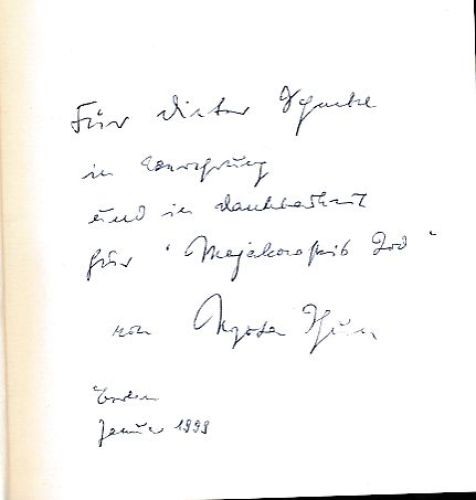 Für Dieter Schnebel
in Verehrung
und in Dankbarkeit
für "Majakowskis Tod"
von Nyota Thun
Berlin
Januar 1999